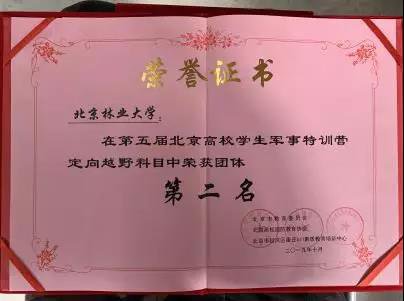 荣誉证书
北京林业大学：
在第五届北京高校学生军事特训营
定向越野科目中荣获团体
第二名
北京市教育委员会
二〇一九年十月